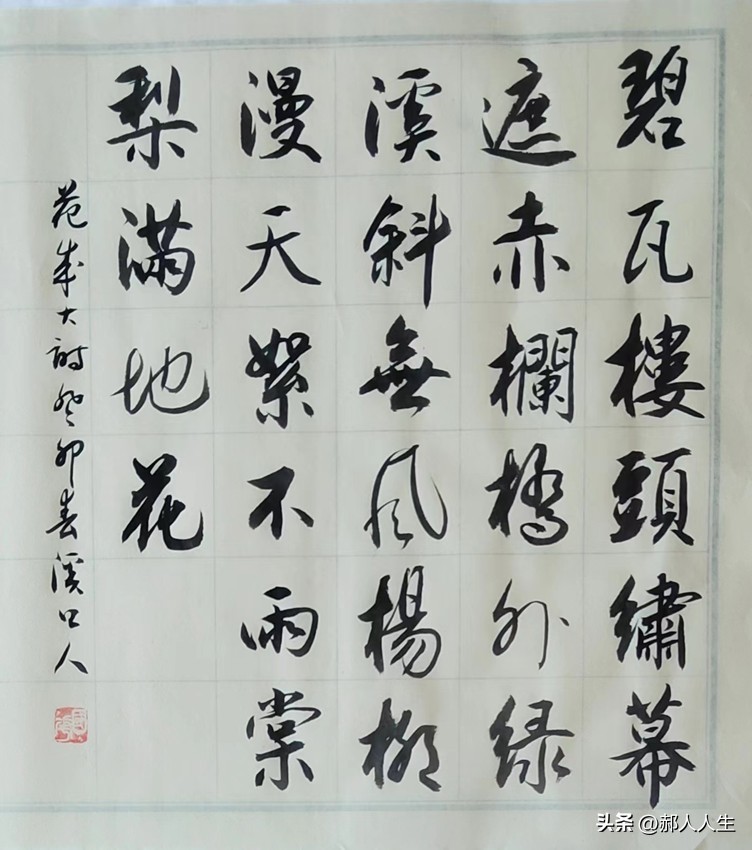 碧瓦樓頭繡幕
遮赤欄橋外緑
溪斜無風楊柳
漫天絮不雨棠
梨滿地花
范成大詩癸卯春溪口人
头条 @郝人人生